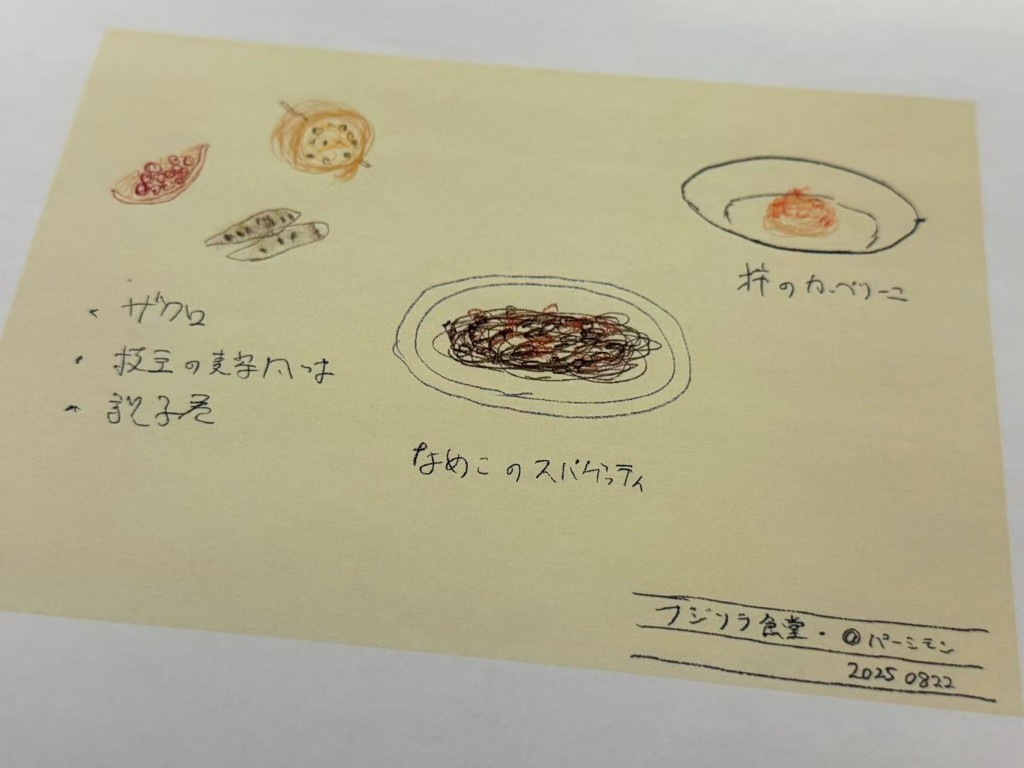 ・ザクロ
・枝豆の
柿のカッペリーニ
なめこのスパゲッティ
フジソラ食堂・@パーシモン
20250822